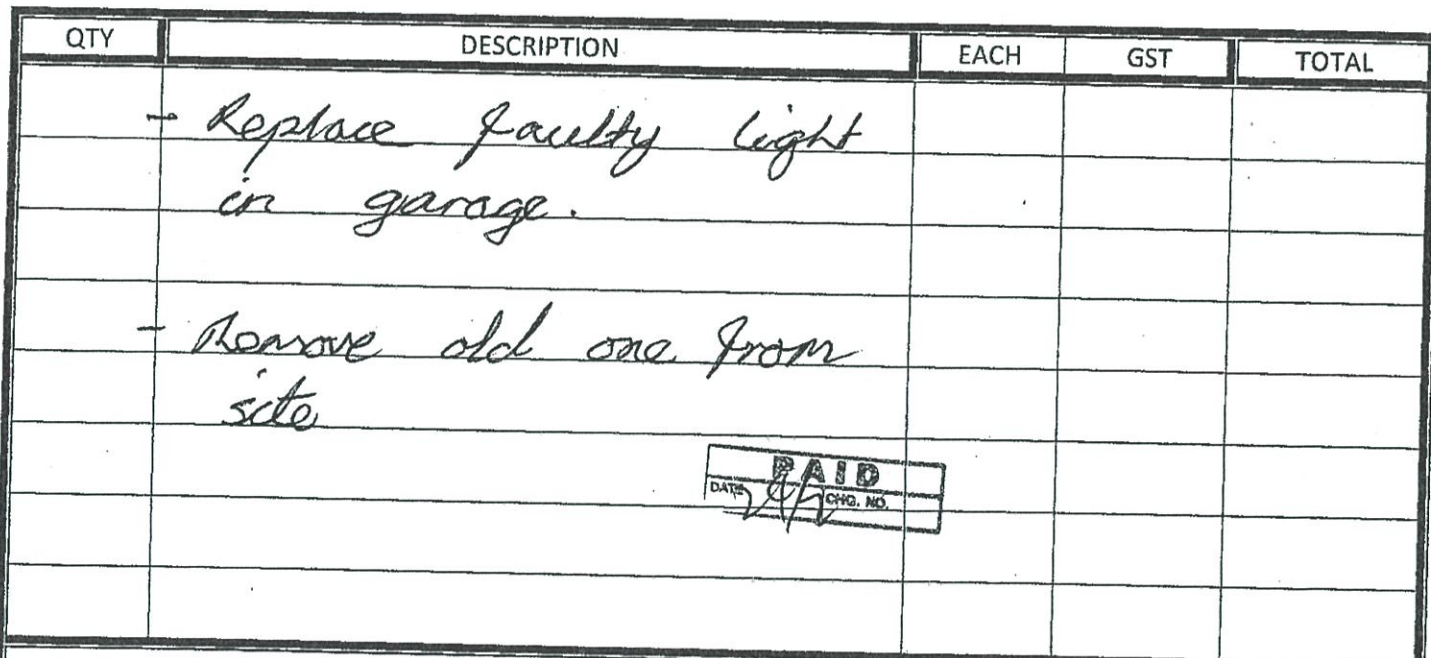 QTY DESCRIPTION EACH GST TOTAL
- Replace faulty light
in garage.
- Remove old one from
site
PAID
DATE CHQ. NO.